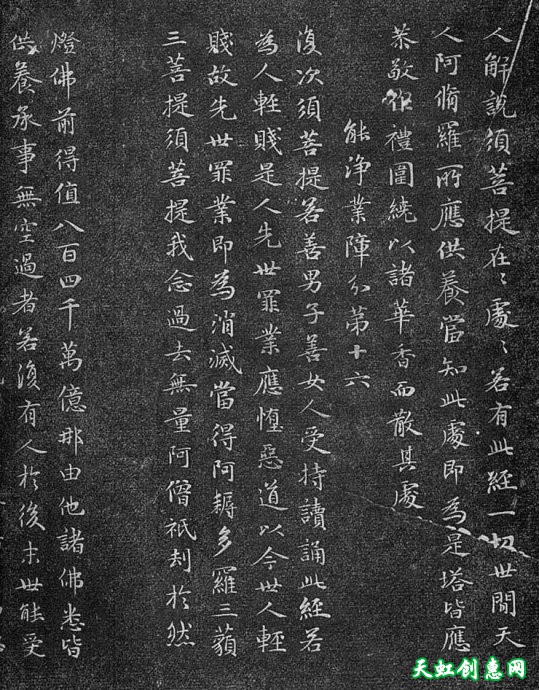 人解說須菩提在〻處〻若有此經一切世間天
人阿脩羅所應供養當知此處即為是塔皆應
恭敬作禮圍繞以諸華香而散其處
能浄業障分第十六
復次須菩提若善男子善女人受持讀誦此經若
為人輊賤是人先世罪業應墮惡道以今世人輊
賤故先世罪業即為消滅當得阿耨多羅三藐
三菩提須菩提我念過去無量阿僧祇刦於然
燈佛前得值八百四千萬億那由他諸佛悉皆
供養承事無空過者若復有人於後末世能受
天虹创意网